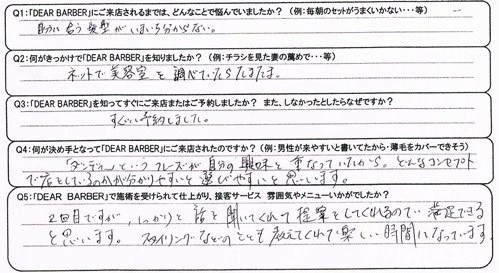 Q1:「DEAR BARBER」にご来店されるまでは、どんなことで悩んでいましたか？（例：毎朝のセットがうまくいかない・・・等）
助に合う髪型がいまいち分からない。
Q2：何がきっかけで「DEAR BARBER」を知りましたか？（例：チラシを見た妻の薦めで・・・等）
ネットで美容室を調べていたらたまたま。
Q3：「DEAR BARBER」を知ってすぐにご来店またはご予約しましたか？ また、しなかったとしたらなぜですか？
すぐに予約しました。
Q4：何が決め手となって「DEAR BARBER」にご来店されたのですか？（例：男性が来やすいと書いてたから・薄毛をカバーできそう）
「ダンディ」というフレーズが自分の興味と重なっていたから。どんなコンセプト
で店としているのかが分かりやすいと選びやすいと思います。
Q5：「DEAR BARBER」で施術を受けられて仕上がり、接客サービス 雰囲気やメニューいかがでしたか？
2回目ですが、しっかりと話を聞いてくれて提案をしてくれるので満足できる
と思います。スタイリングなどのことも教えてくれて楽しい時間になっています。